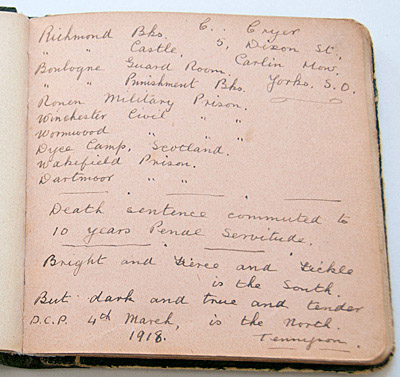 Richmond Bks. C. Cryer
" " Castle, 5, Dixon St,
Boulogne Guard Room, Carlin How.
" " Punishment Bks. Yorks. S.O.
Rouen Military Prison.
Winchester Civil " "
Wormwood " " "
Dyce Camp, Scotland.
Wakefield Prison.
Dartmoor " "
Death sentence commuted to
10 years Penal Servitude.
Bright and fierce and fickle
is the South.
But dark and true and tender
D.C.P. 4th March, is the North.
1918. Tennyson.